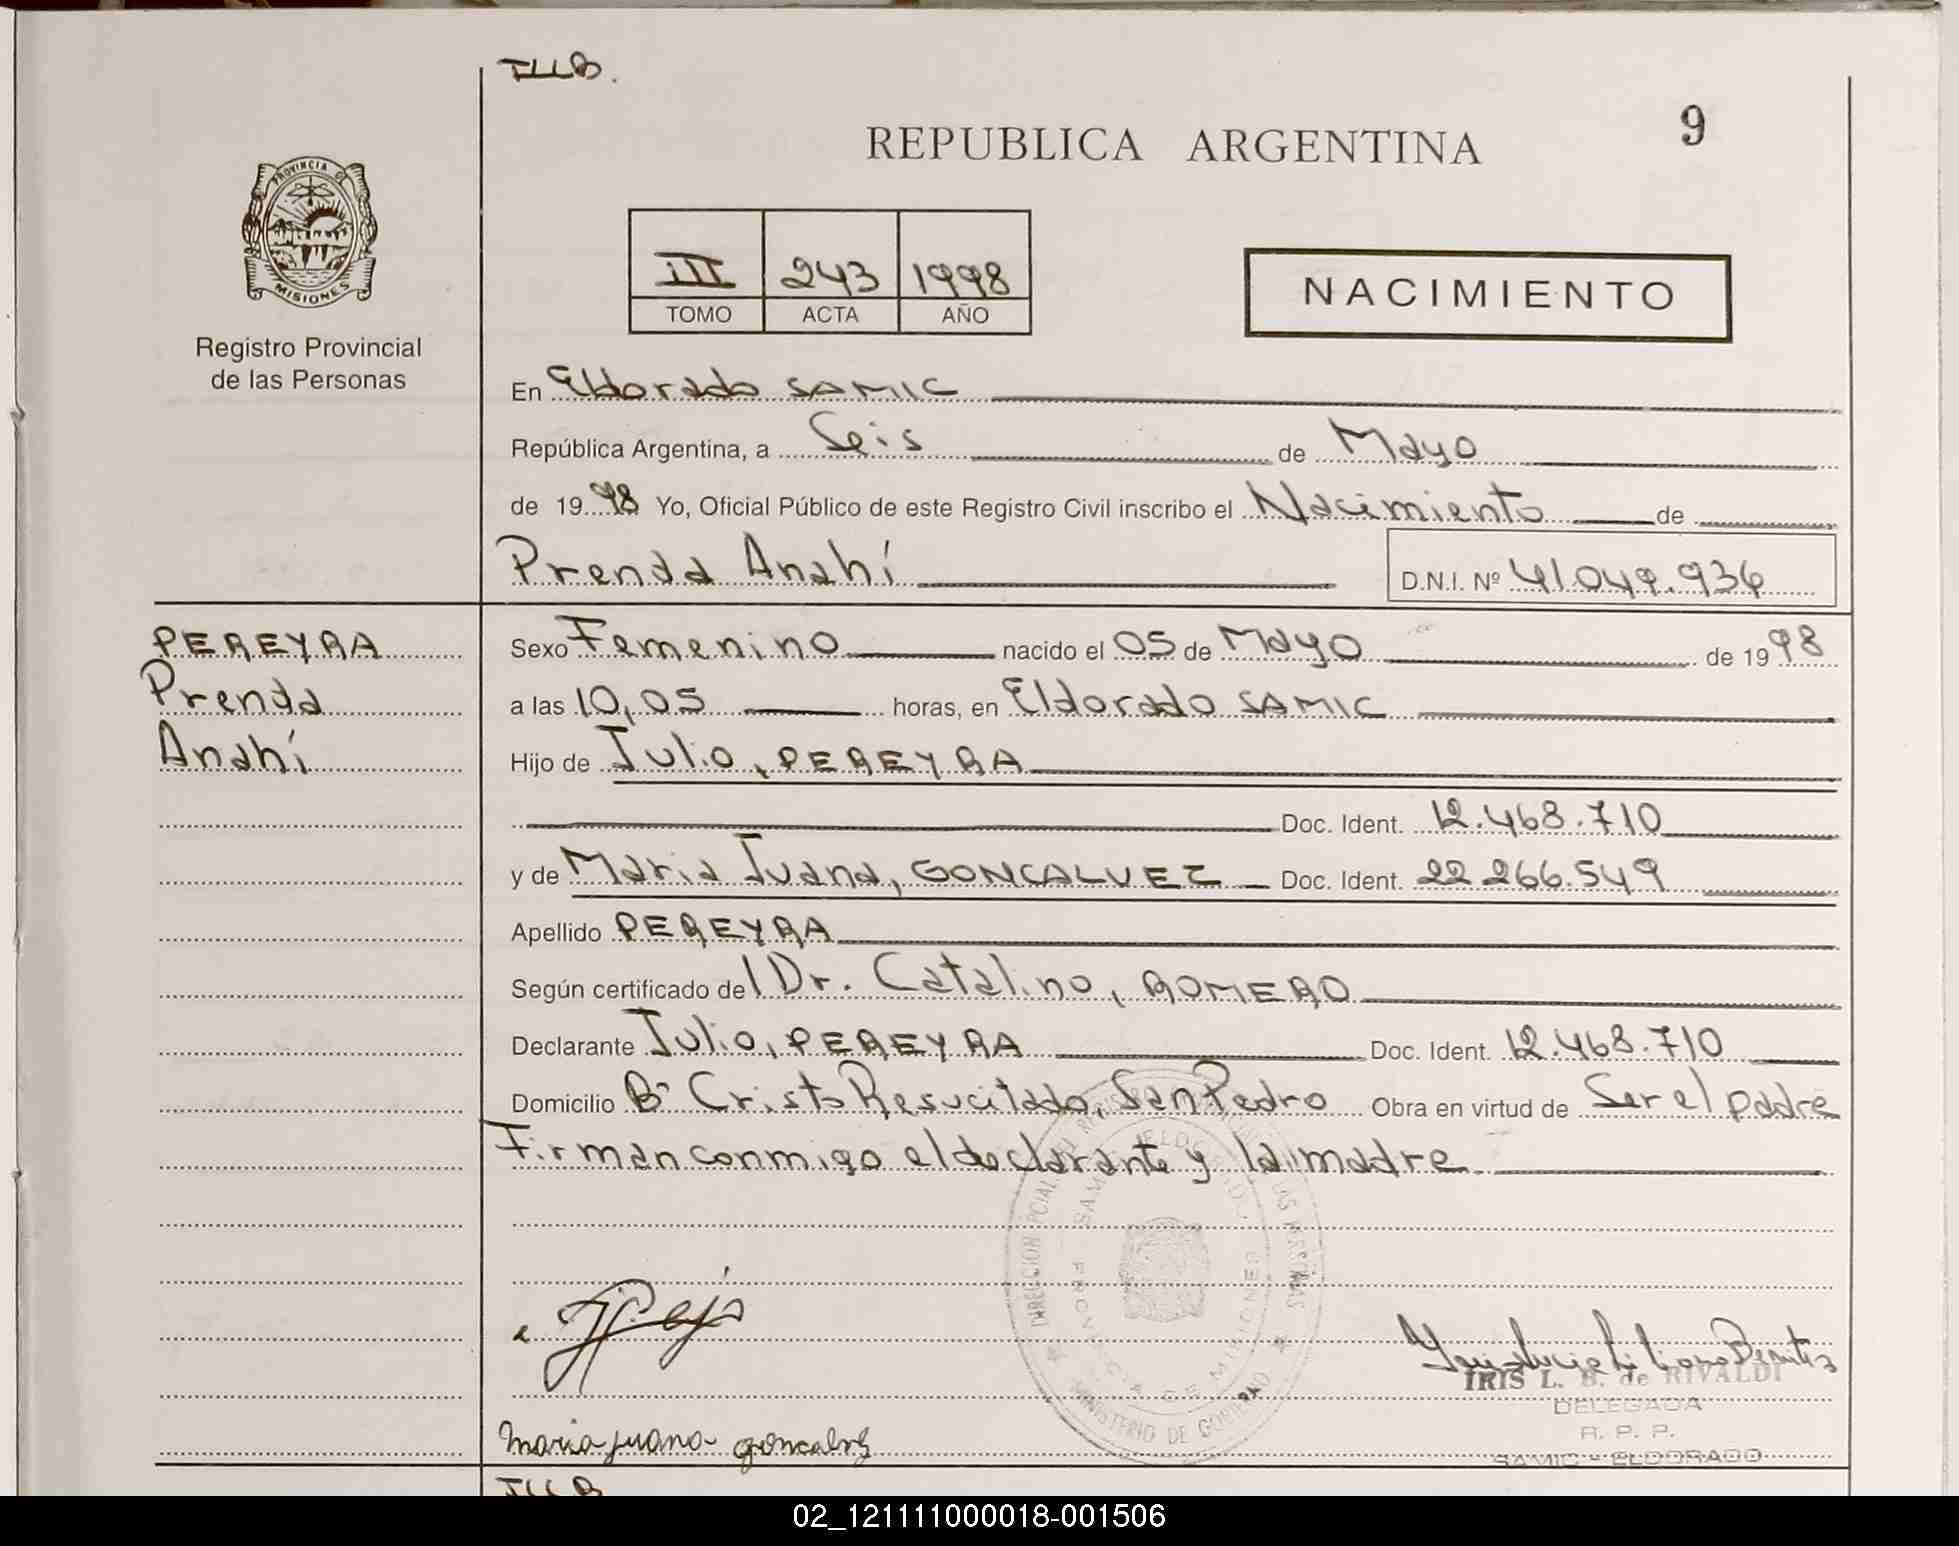 ILLB.
9
REPUBLICA ARGENTINA
PROVINCIA DE
MISIONES
III 243 1998
TOMO ACTA AÑO
NACIMIENTO
Registro Provincial
de las Personas
En Eldorado SAMIC
República Argentina, a Seis de Mayo
de 1998 Yo, Oficial Público de este Registro Civil inscribo el Nacimiento de
Prenda Anahí D.N.I. Nº 41.049.936
PEREYRA
Prenda
Anahí
Sexo Femenino nacido el 05 de Mayo de 1998
a las 10,05 horas, en Eldorado SAMIC
Hijo de Julio, PEREYRA
Doc. Ident. 12.468.710
y de Maria Juana, GONCALVEZ Doc. Ident. 22.266.549
Apellido PEREYRA
Según certificado del Dr. Catalino, ROMERO
Declarante Julio, PEREYRA Doc. Ident. 12.468.710
Domicilio Bº Cristo Resucitado, San Pedro Obra en virtud de Ser el padre
Firman conmigo el declarante y la madre
DIRECCION PCIAL. DEL REGISTRO DE LAS PERSONAS
SAMIC ELDORADO
PROVINCIA DE MISIONES
MINISTERIO DE GOBIERNO
IRIS L. B. de RIVALDI
DELEGADA
R. P. P.
SAMIC - ELDORADO
Maria Juana goncalvez
ILLB
02_121111000018-001506